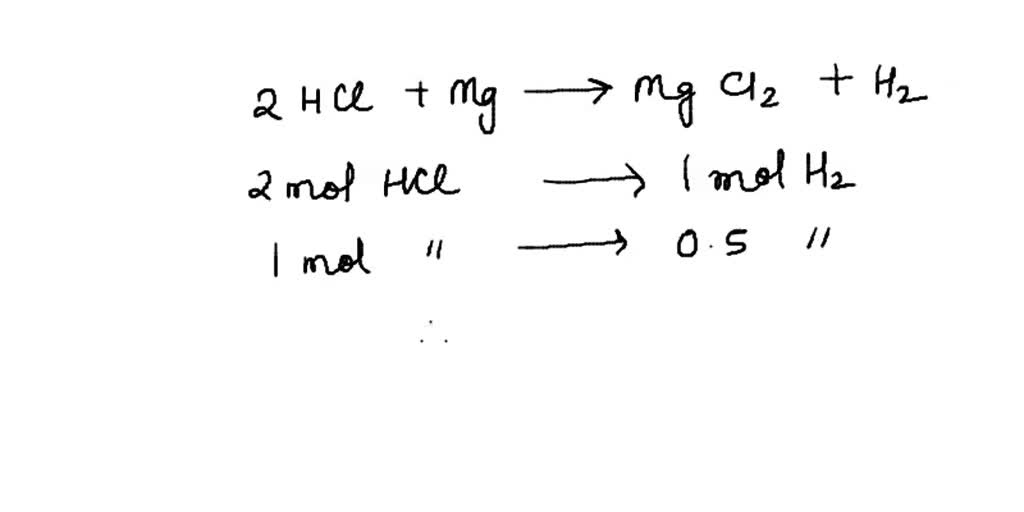 2 HCl + Mg → Mg Cl2 + H2
2 mol HCl → 1 mol H2
1 mol " → 0.5 "
∴